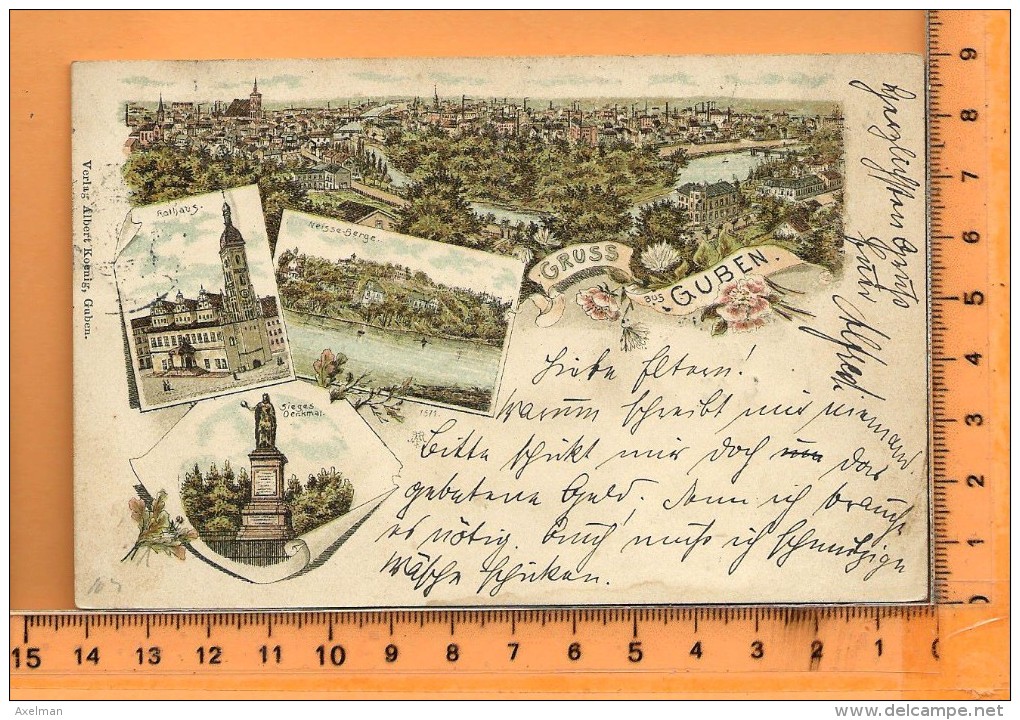 Rathaus.
Neisse-Berge.
Sieges
Denkmal.
1511.
GRUSS
aus GUBEN.
Verlag Albert Koenig, Guben.
Liebe Eltern!
Warum schreibt mir niemand.
Bitte schickt mir doch das
gebetene Geld, denn ich brauche
es nötig. Auch muß ich schmutzige
Wäsche schicken.
Herzlichsten Gruß
Euer Alfred
9
8
7
6
5
4
3
2
1
0
15 14 13 12 11 10 9 8 7 6 5 4 3 2 1 0
Axelman
www.delcampe.net